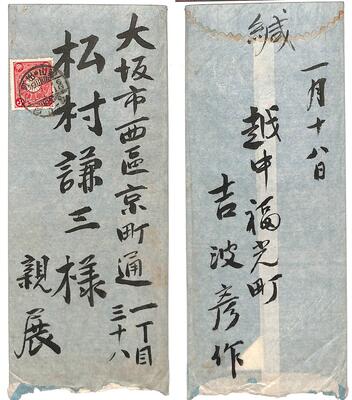 大坂市西區京町通一丁目
三十八
松村謙三様
親展
緘
一月十八日
越中福光町
吉波彦作